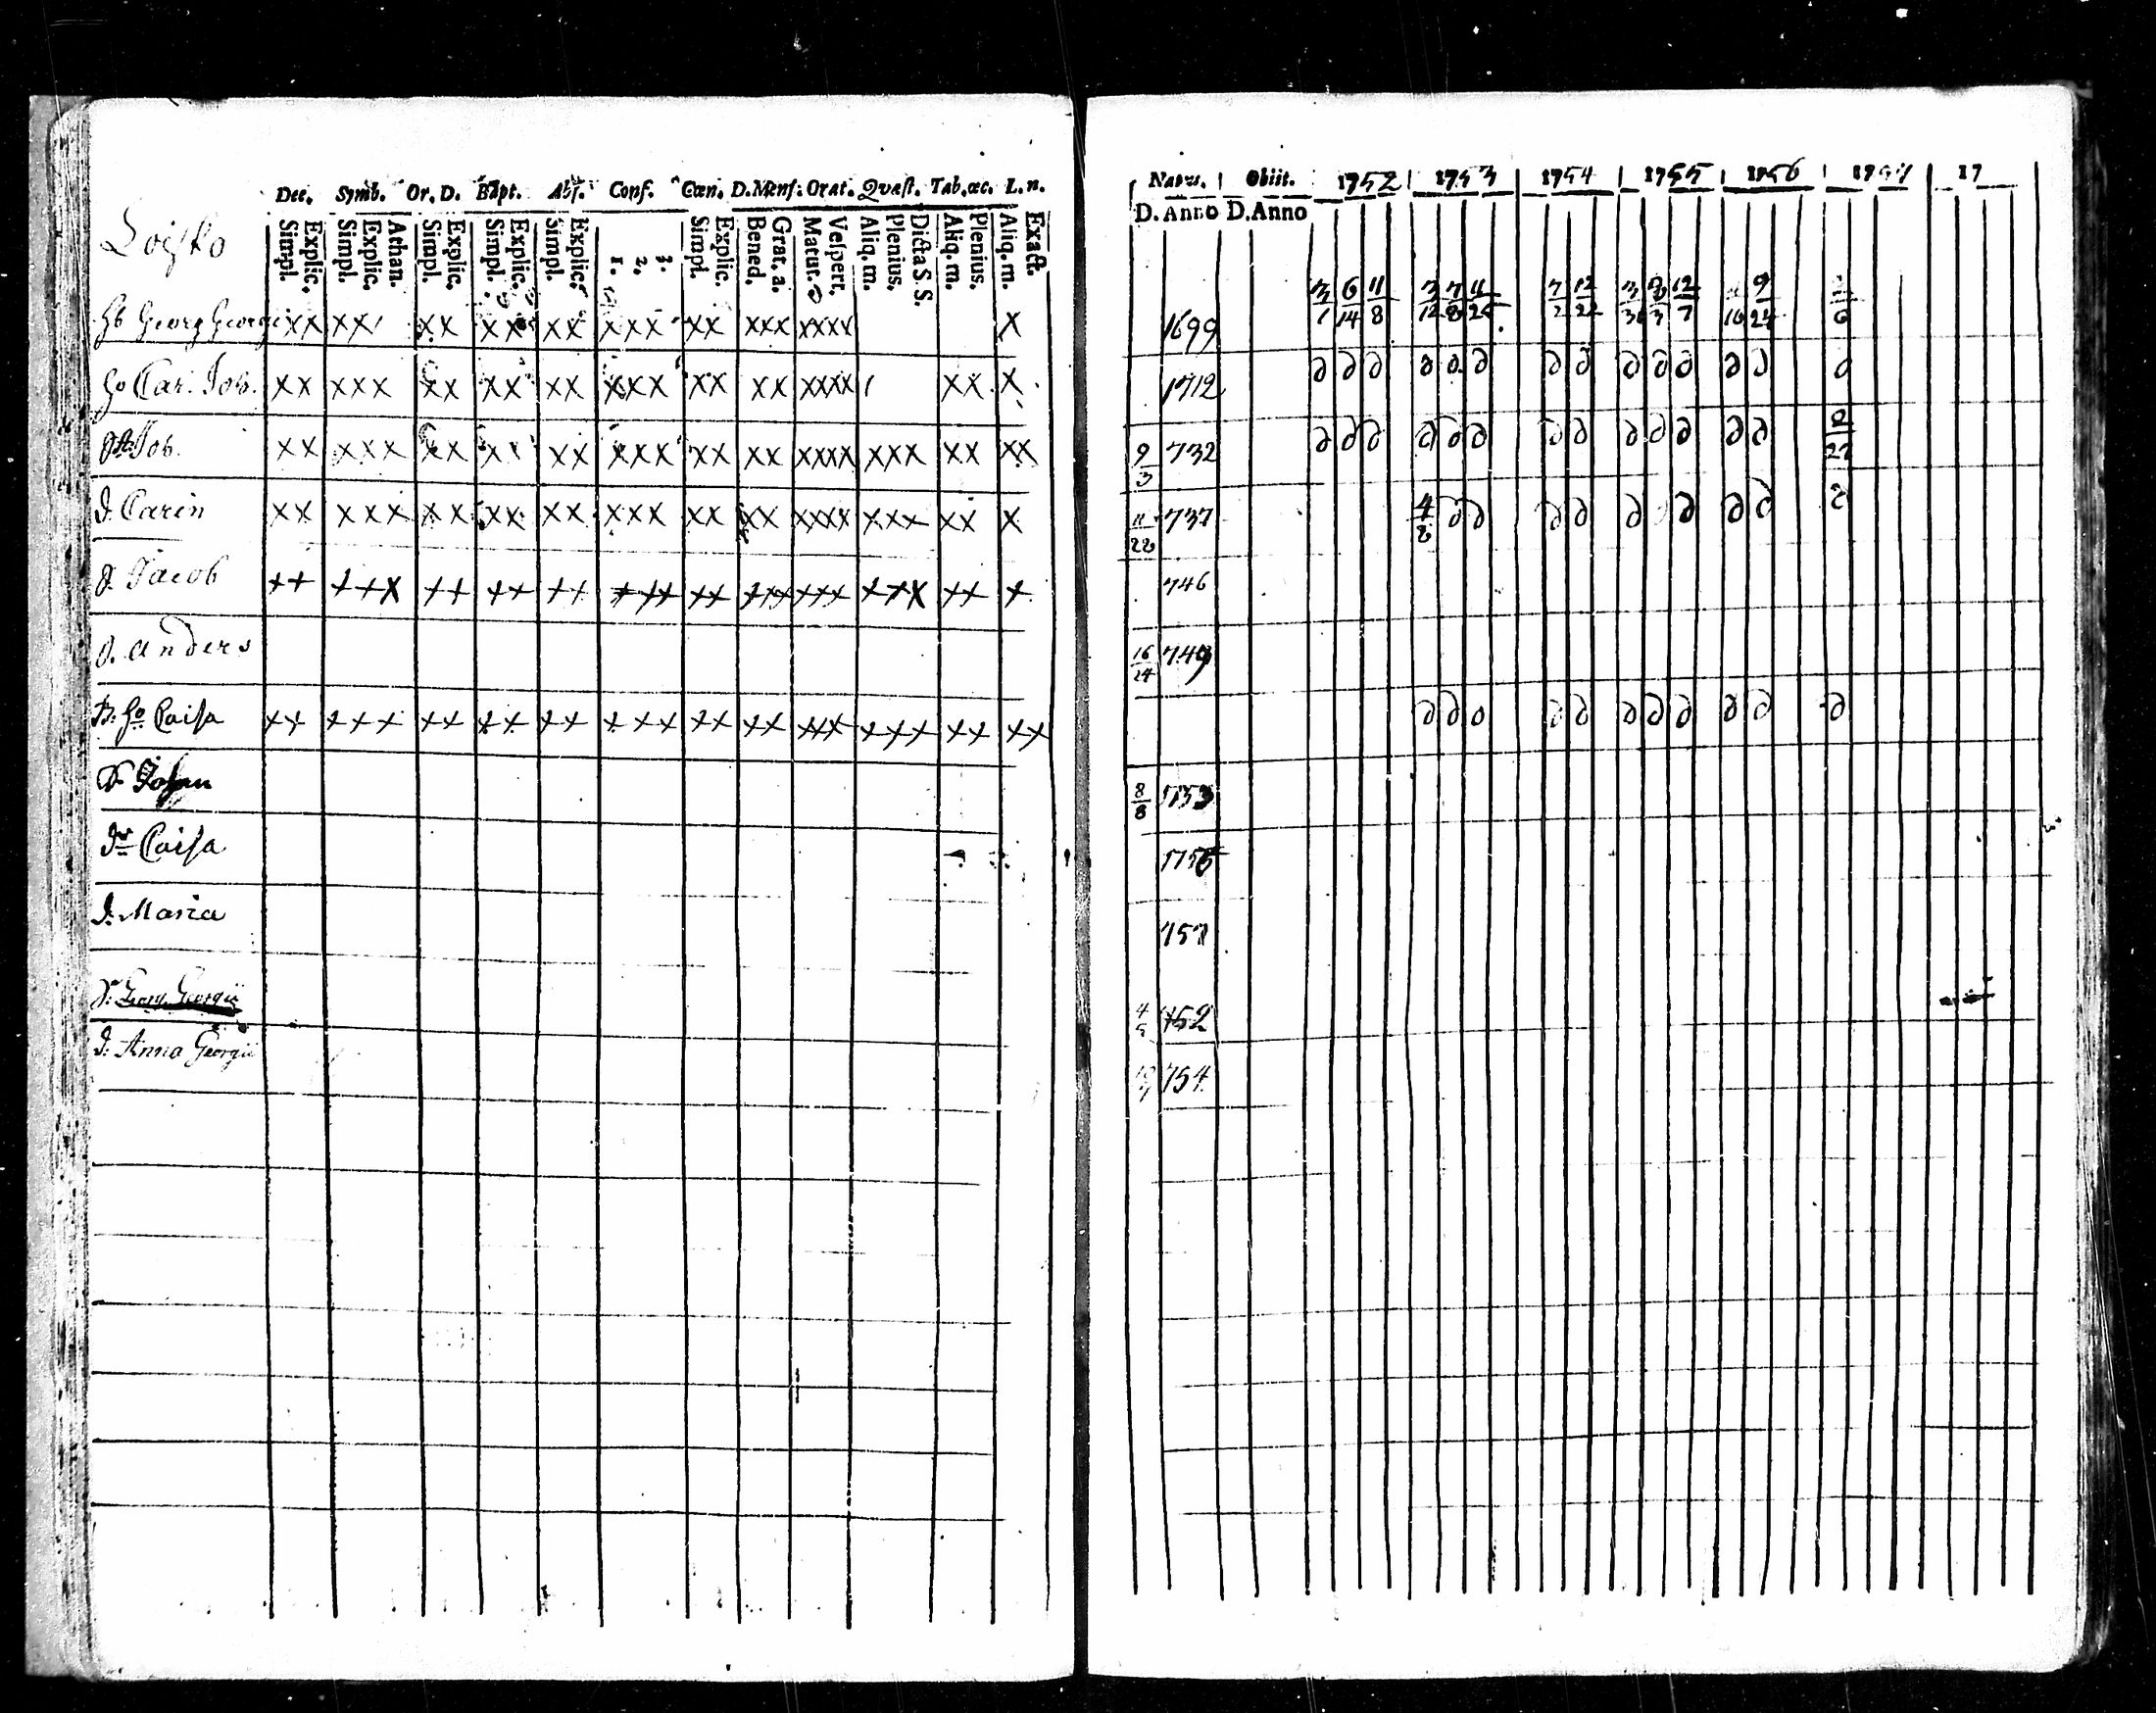 Dec. Symb. Or. D. Bapt. Abs. Conf. Cœn. D. Mens. Orat. Quæst. Tab. œc. L. n.
Simpl. Explic. Simpl. Explic. Athan. Simpl. Explic. Simpl. Explic. Simpl. Explic. 1. 2. 3. Simpl. Explic. Bened. Grat. a. Matut. Vespert. Aliq. m. Plenius. Dicta S. S. Aliq. m. Plenius. Aliq. m. Exact.
Loisko
Hb Georg Georgi xx xx xx xx xx xxx xx xxx xxxx x
Ho Car. Joh. xx xxx xx xx xx xxx xx xx xxxx xx x
Joh. xx xxx xx xx xx xxx xx xx xxxx xxx xx xx
d. Carin xx xxx xx xx xx xxx xx xx xxxx xxx xx x
S. Jacob ++ ++x ++ ++ ++ +++ ++ +++ +++ ++x ++ +
S. anders
B: Ho Caisa ++ +++ ++ ++ ++ +++ ++ ++ +++ +++ ++ ++
Sr Johan
dr Caisa
d. Maria
S: Georg Georgii
d: Anna Georgii
Natus. Obiit. 1752 1753 1754 1755 1756 1757 17
D. Anno D. Anno
3/1 6/14 11/8 3/12 7/8 11/25 7/2 12/22 3/30 8/3 12/7 9/24
1699
1712 ∂ ∂ ∂ ∂ ∂ ∂ ∂ ∂ ∂ ∂ ∂ ∂ ∂ ∂
9/3 732 ∂ ∂ ∂ ∂ ∂ ∂ ∂ ∂ ∂ ∂ ∂ ∂ ∂
11/28 737 4/8 ∂ ∂ ∂ ∂ ∂ ∂ ∂ ∂ ∂
746
16/24 749
∂ ∂ ∂ ∂ ∂ ∂ ∂ ∂ ∂ ∂ ∂
8/8 1753
1756
757
4/5 752
754